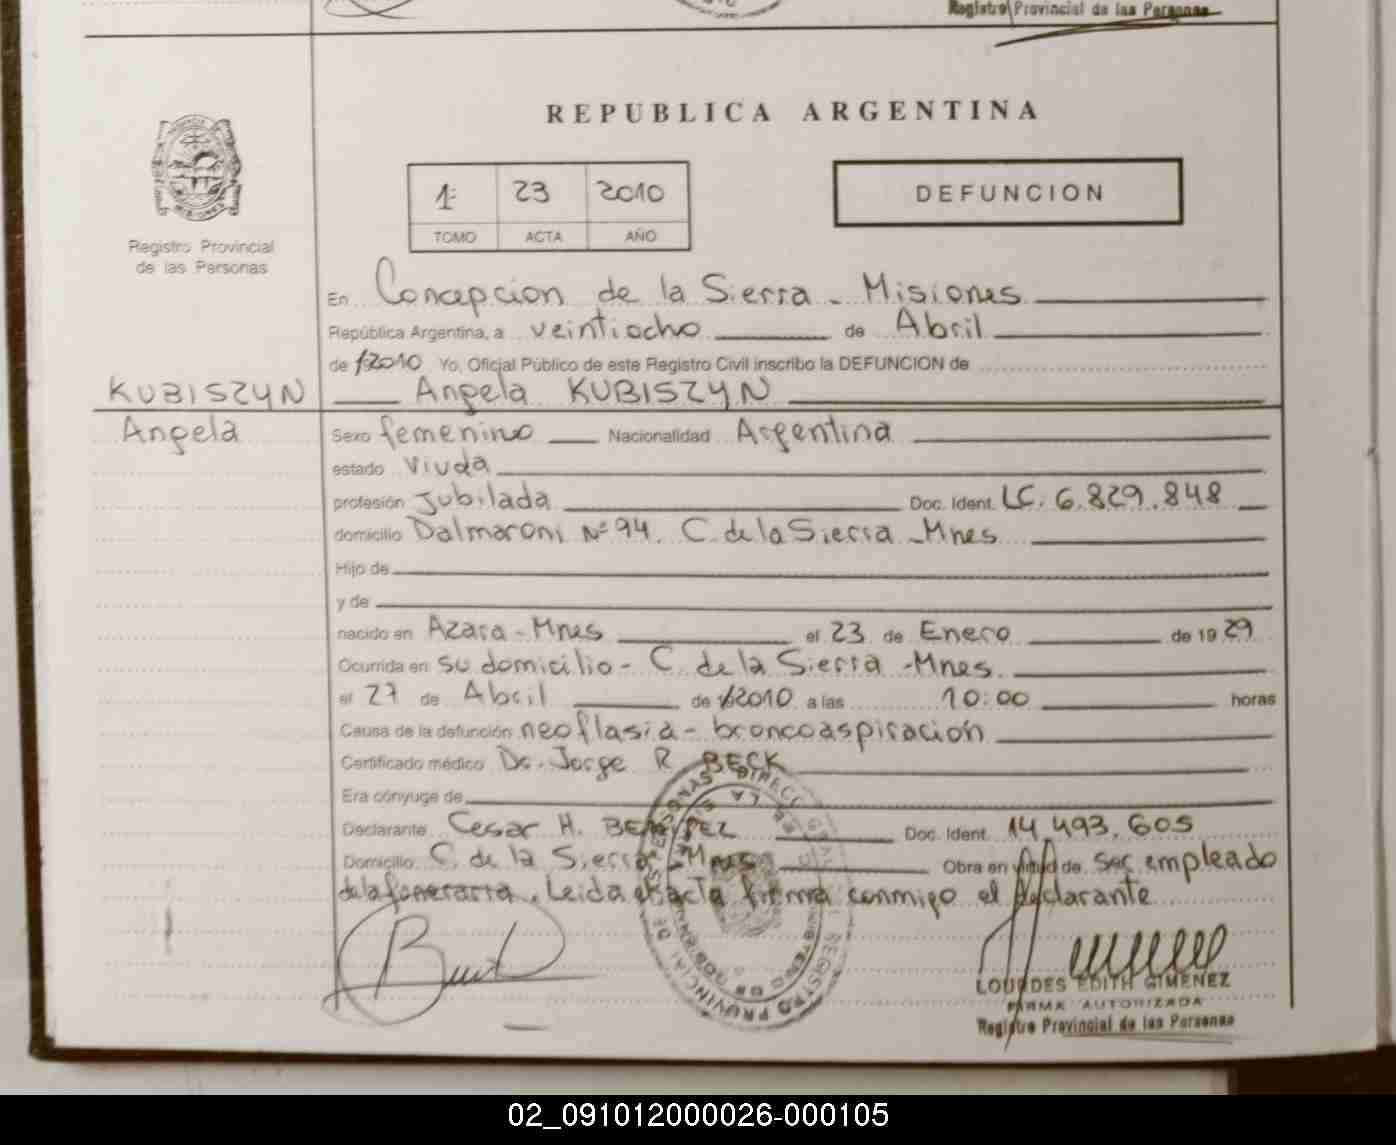 Registro Provincial de las Personas
REPUBLICA ARGENTINA
1º 23 2010
TOMO ACTA AÑO
DEFUNCION
Registro Provincial
de las Personas
En Concepcion de la Sierra - Misiones
República Argentina, a veintiocho de Abril
de 2010 Yo, Oficial Público de este Registro Civil inscribo la DEFUNCION de
KUBISZYN Angela KUBISZYN
Angela Sexo femenino Nacionalidad Argentina
estado viuda
profesión Jubilada Doc. Ident. LC. 6.829.848
domicilio Dalmaroni Nº 94. C. de la Sierra - Mnes
Hijo de
y de
nacido en Azara - Mnes el 23 de Enero de 19 29
Ocurrida en su domicilio - C. de la Sierra - Mnes.
el 27 de Abril de 2010 a las 10:00 horas
Causa de la defunción neoflasia - broncoaspiración
Certificado médico Dr. Jorge R. BECK
Era cónyuge de
Declarante Cesar H. Doc. Ident. 14.493.605
Domicilio C. de la Sierra Mnes Obra en virtud de ser empleado
de la funeraria. Leida el acta firma conmigo el declarante
LOURDES EDITH GIMENEZ
FIRMA AUTORIZADA
Registro Provincial de las Personas
02_091012000026-000105